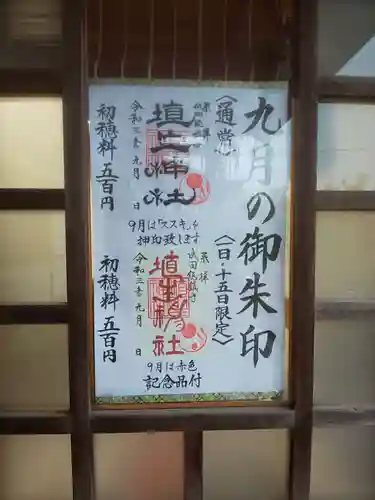 九月の御朱印
〈通常〉
奉拝
武田信玄
埴生神社
令和三年 九月 日
初穂料 五百円
9月は「ススキ」を
押印致します
〈一日・十五日限定〉
奉拝
埴生神社
令和三年 九月 日
9月は赤色
記念品付
初穂料 五百円